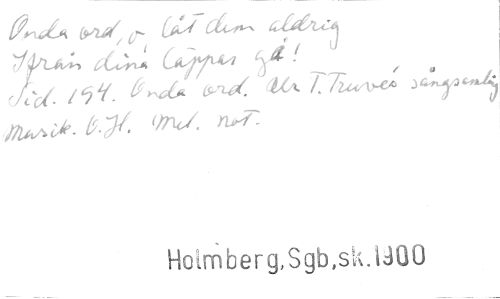 Onda ord, o låt dem aldrig
Ifrån dina läppar gå!
Sid. 194. Onda ord. Ur T. Truvés sångsamling
Musik. O.H. Mel. not.
Holmberg,Sgb,sk.1900